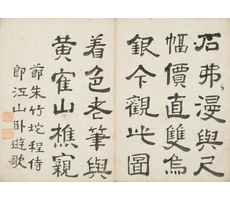 石弗漫與尺
幅價直雙烏
銀今觀此圖
着色老筆與
黃寉山樵
節朱竹垞程侍
郎江山臥遊歌